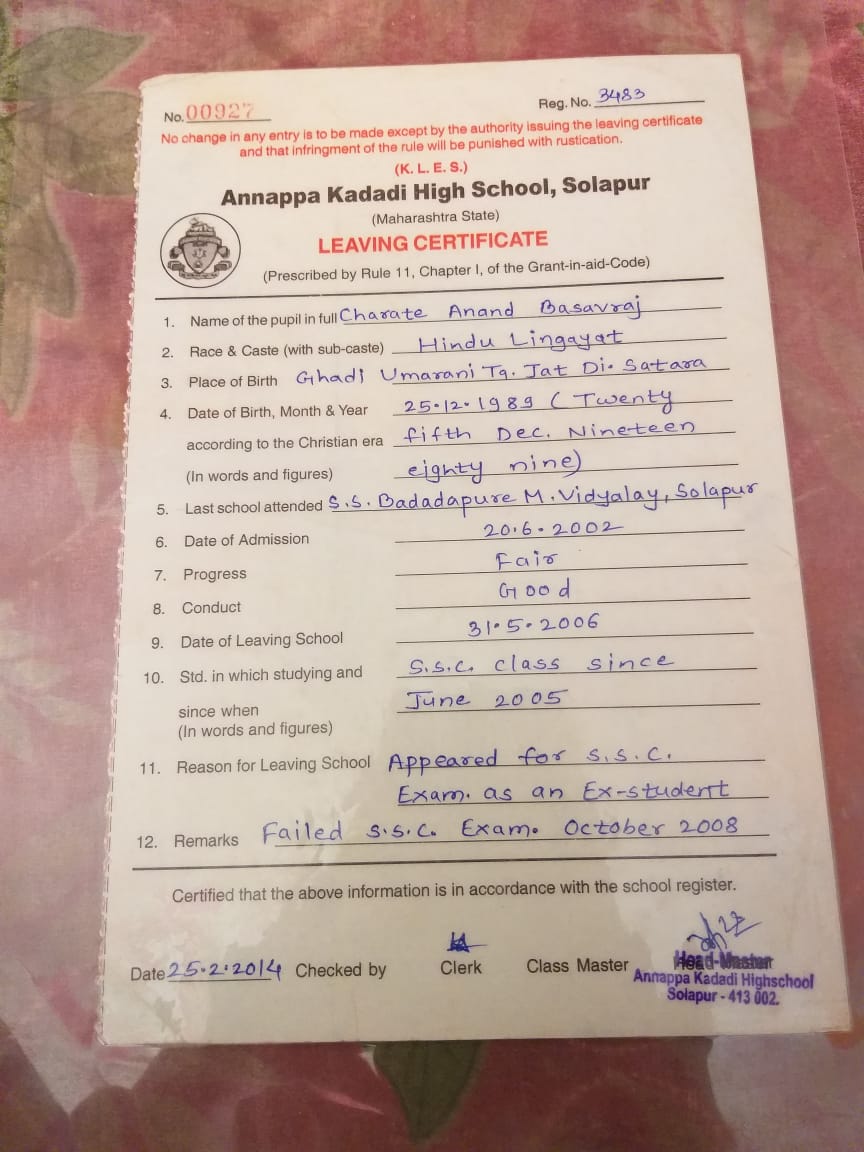 No. 00927 Reg. No. 3483
No change in any entry is to be made except by the authority issuing the leaving certificate
and that infringment of the rule will be punished with rustication.
(K. L. E. S.)
Annappa Kadadi High School, Solapur
(Maharashtra State)
LEAVING CERTIFICATE
(Prescribed by Rule 11, Chapter I, of the Grant-in-aid-Code)
1. Name of the pupil in full Charate Anand Basavraj
2. Race & Caste (with sub-caste) Hindu Lingayat
3. Place of Birth Ghadi Umarani Tq. Jat Di. Satara
4. Date of Birth, Month & Year 25.12.1989 (Twenty
according to the Christian era fifth Dec. Nineteen
(In words and figures) eighty nine)
5. Last school attended S.S. Badadapure M. Vidyalay, Solapur
6. Date of Admission 20.6.2002
7. Progress Fair
8. Conduct Good
9. Date of Leaving School 31.5.2006
10. Std. in which studying and S.S.C. class since
since when June 2005
(In words and figures)
11. Reason for Leaving School Appeared for S.S.C.
Exam. as an Ex-student
12. Remarks Failed S.S.C. Exam. October 2008
Certified that the above information is in accordance with the school register.
Date 25.2.2014 Checked by Clerk Class Master Head-Master
Annappa Kadadi Highschool
Solapur - 413 002.